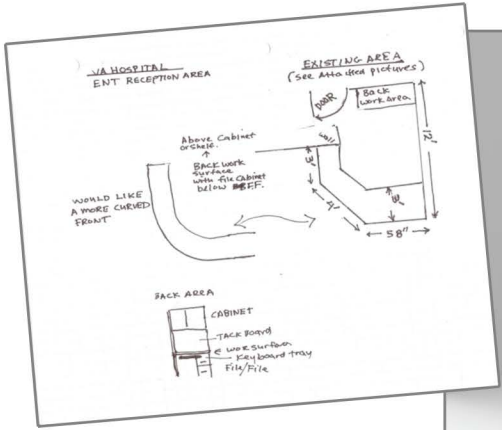 VA HOSPITAL
ENT RECEPTION AREA
EXISTING AREA
(see Attached pictures)
DOOR
Back
work Area
wall
12'
3'
4'
3'
58"
Above Cabinet
or shelf.
BACK work
surface
with file Cabinet
below
WOULD LIKE
A MORE CURVED
FRONT
BACK AREA
CABINET
TACK Board
work surface
Keyboard tray
File/File